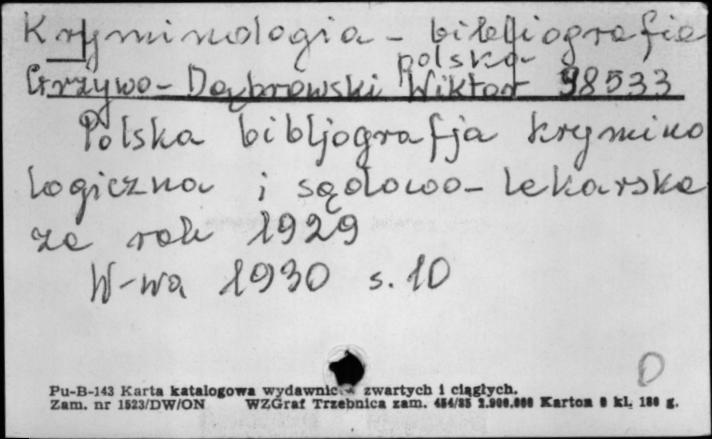 Kryminologia - bibljiografia
polska
Grzywo-Dąbrowski Wiktor 98533
Polska bibljografja krymino
logiczna i sądowo-lekarska
za rok 1929
W-wa 1930 s. 10
D
Pu-B-143 Karta katalogowa wydawnic zwartych i ciągłych.
Zam. nr 1523/DW/ON WZGraf Trzebnica zam. 454/85 2.900.000 Karton kl. 180 g.